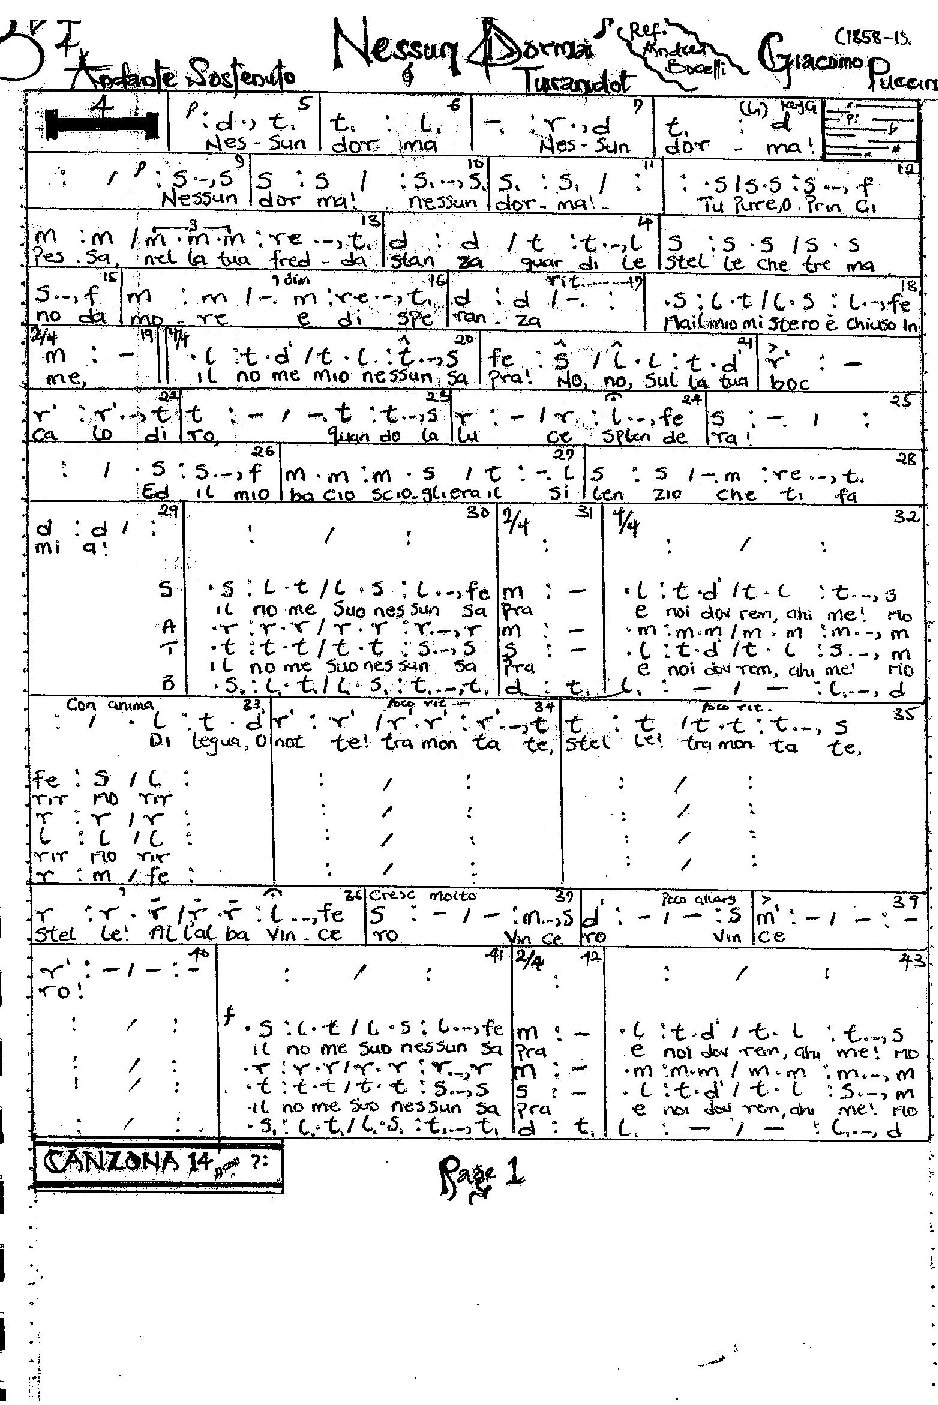 Nessun Dorma (Ref. Andrea Bocelli) Giacomo Puccini (1858-19
Andante Sostenuto Turandot
4 5 6 7 (L) KEY G
p : d ., t. t. : l. - : r ., d t. : d
Nes - Sun dor ma Nes - Sun dor - ma!
9 10 11 12
: / p : s ..,s s : s / : s. ..,s. s. : s. / : : · s / s · s : s ..,f
Nessun dor ma! nessun dor - ma! - Tu Pure, O Prin Ci
3 13 14
m : m / m · m · m : re ..,t. d : d / t : t ..,l s : s · s / s · s
Pes . Sa, nel la tua fred - da stan za guar di le Stel le che tre ma
15 dim 16 rit. 17 18
s ..,f m : m / - · m : re ..,t. d : d / - · : · s : l · t / l · s : l ..,fe
no da mo - re e di spe ran - za Ma il mio mi stero è chiuso in
2/4 19 4/4 20 21
m : - · l : t · d' / t · l : t ..,s fe : s / l · l : t · d' r' : -
me, il no me mio nessun sa pra! No, no, sul la tua boc
22 23 24 25
r' : r' ..,t t : - / - · t : t ..,s r : - / r : l ..,fe s : - · / :
ca lo di rò, quan do la lu ce splen de ra!
26 27 28
: / · s : s ..,f m · m : m · s / t : - · l s : s / - · m : re ..,t.
Ed il mio ba cio scio glierà il si len zio che ti fa
29 30 2/4 31 4/4 32
d : d / : : / : : : / :
mi a!
S · s : l · t / l · s : l ..,fe m : - · l : t · d' / t · l : t ..,s
il no me suo nes sun sa pra e noi dov rem, ahi me! mo
A · r : r · r / r · r : r ..,r m : - · m : m · m / m · m : m ..,m
T · t : t · t / t · t : s ..,s s : - · l : t · d' / t · l : s ..,m
il no me suo nes sun sa pra e noi dov rem, ahi me! mo
B · s. : l. · t. / l. · s. : t. ..,t. d : t. l. : - / - : l. ..,d
Con anima 33 Poco rit - 34 Poco rit. 35
/ · l : t · d' r' : r' / r' · r' : r' ..,t t : t / t · t : t ..,s
Di legua, O not te! tra mon ta te, Stel le! tra mon ta te,
fe : s / l : : / : : / :
rir mo rir
r : r / r : : / : : / :
l : l / l : : / : : / :
rir mo rir
r : m / fe : : / : : / :
36 Cresc molto 37 Poco allarg 39
r : r · r / r · r : l ..,fe s : - / - : m ..,s d' : - / - : s m' : - / - : -
Stel le! All'al ba Vin - ce ro Vin ce ro Vin ce
40 41 2/4 42 43
r' : - / - : - : / : : : / :
ro!
: / : f · s : l · t / l · s : l ..,fe m : - · l : t · d' / t · l : t ..,s
il no me suo nessun sa pra e noi dov rem, ahi me! mo
: / : · r : r · r / r · r : r ..,r m : - · m : m · m / m · m : m ..,m
: / : · t : t · t / t · t : s ..,s s : - · l : t · d' / t · l : s ..,m
il no me suo nessun sa pra e noi dov rem, ahi me! mo
: / : · s. : l. · t. / l. · s. : t. ..,t. d : t. l. : - / - : l. ..,d
CANZONA 14 ?:
Page 1